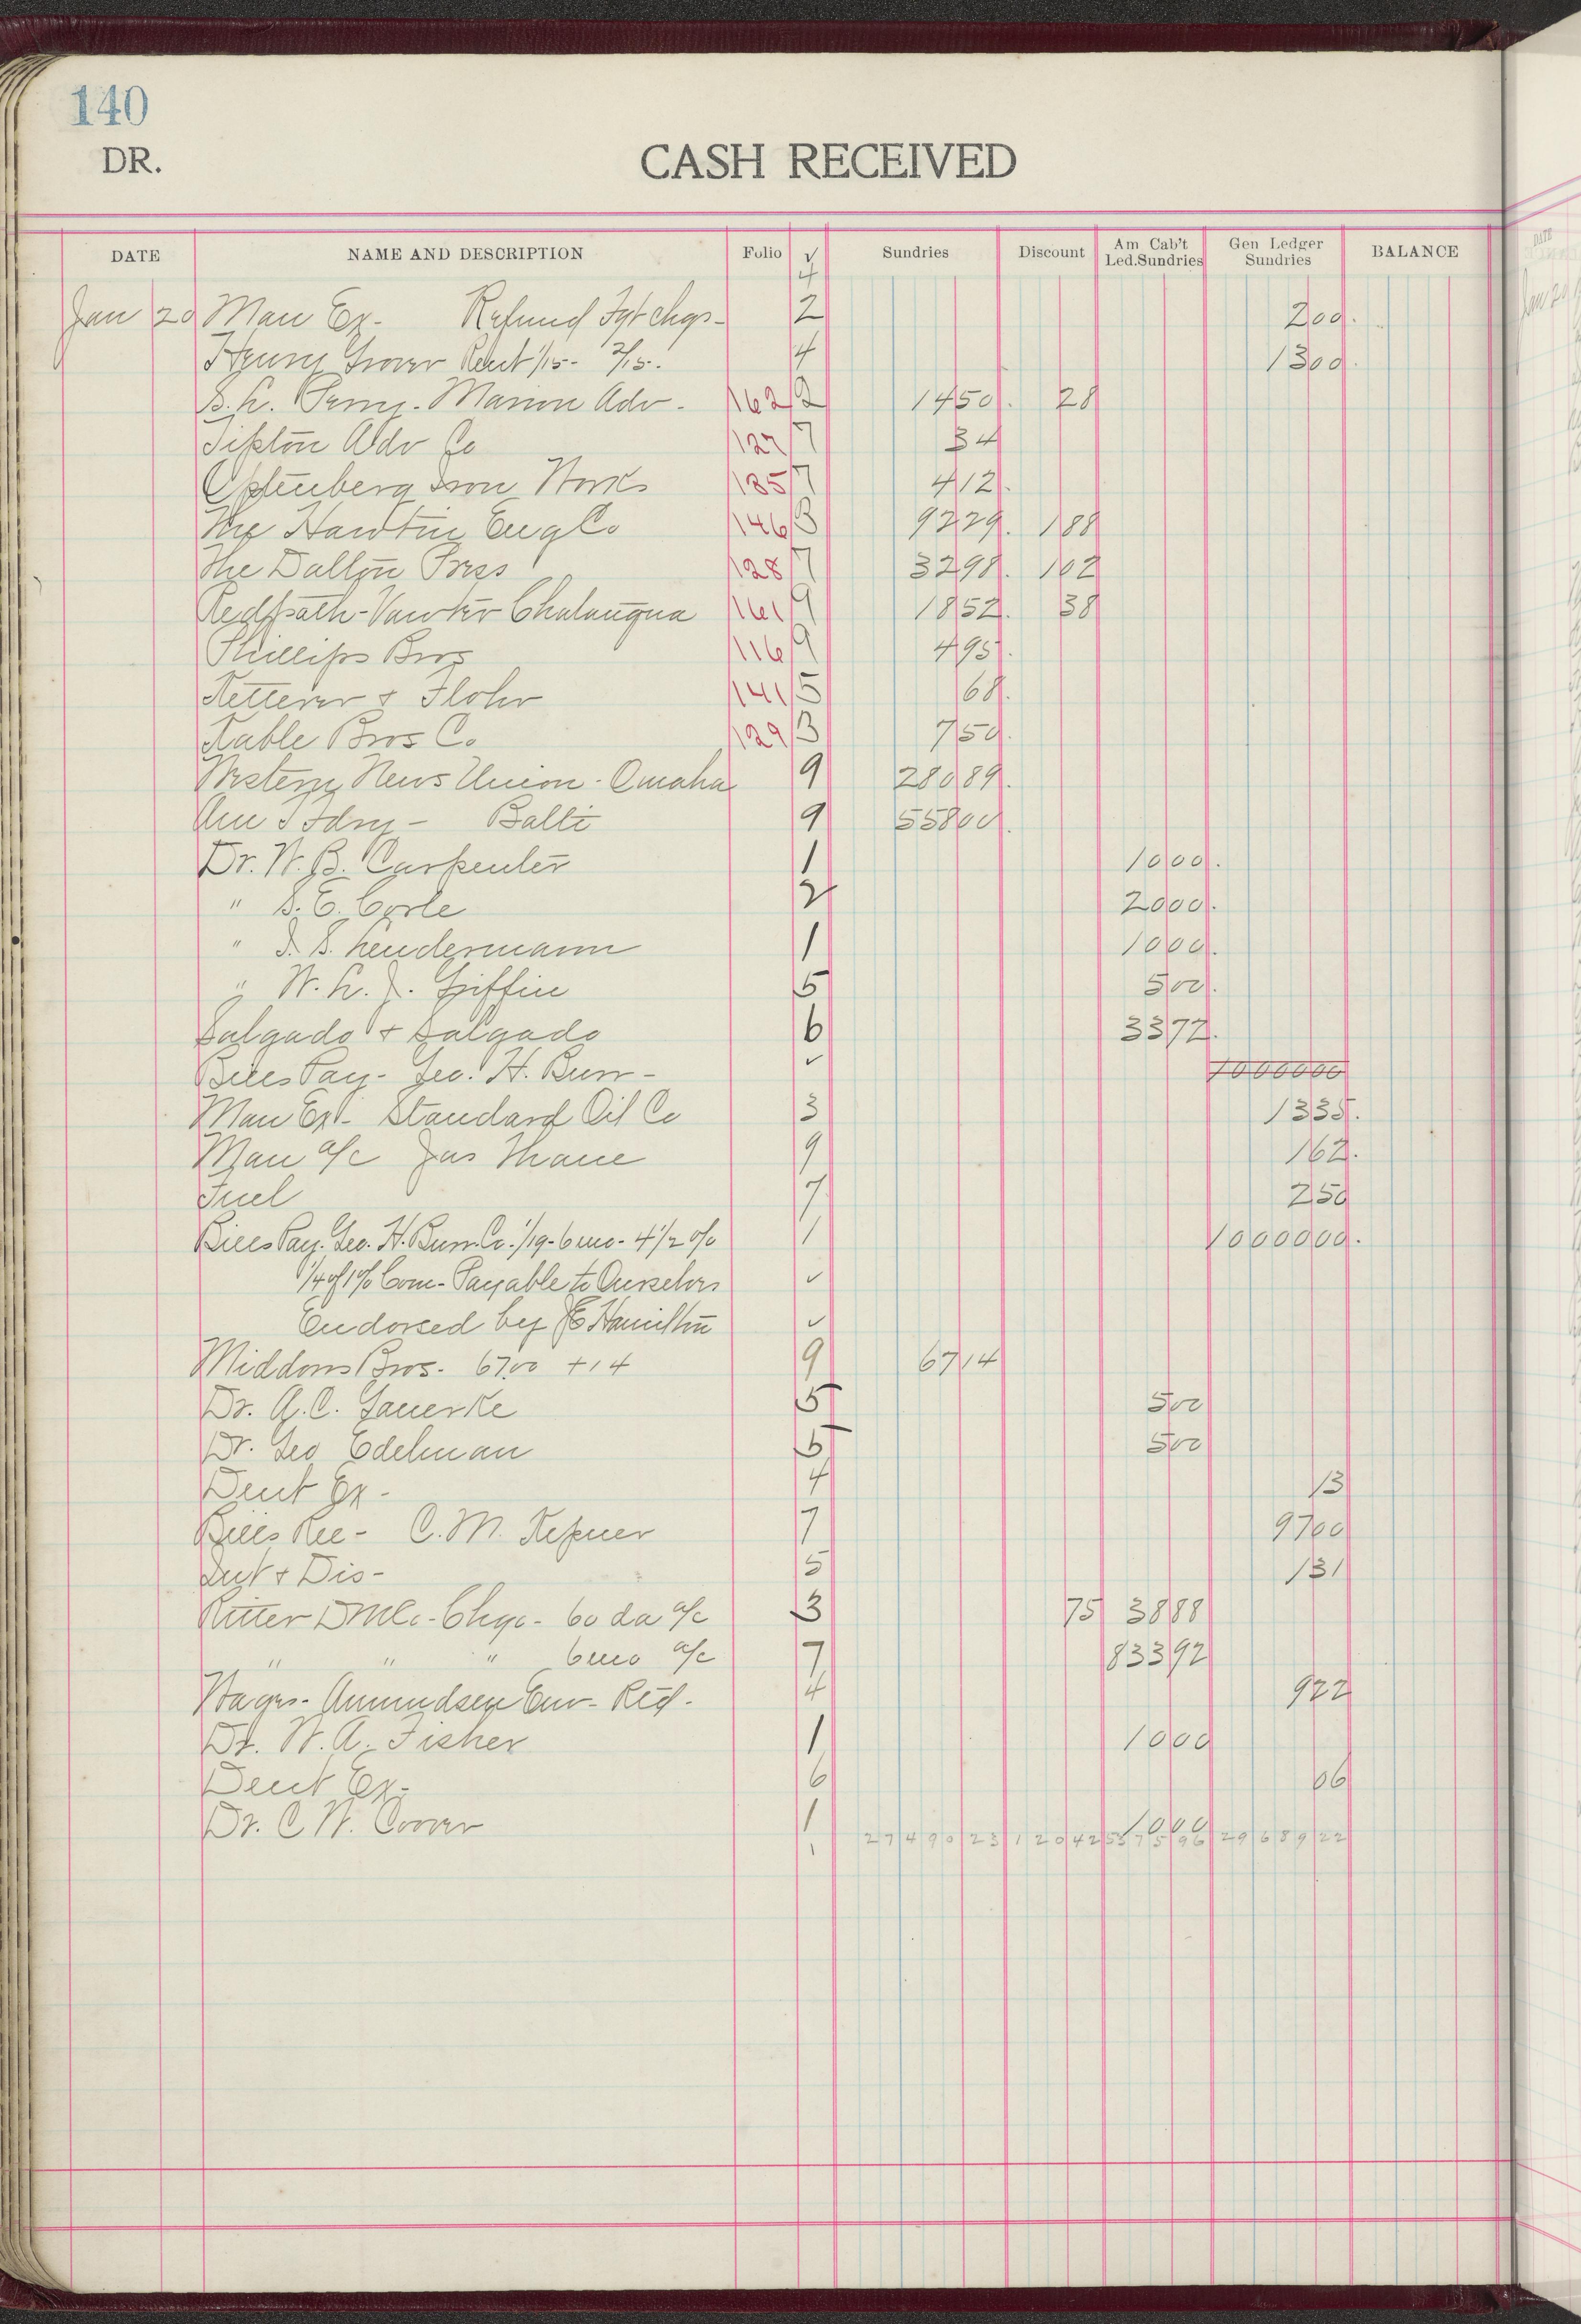 140
DR.
CASH RECEIVED
DATE NAME AND DESCRIPTION Folio √ Sundries Discount Am Cab't Led.Sundries Gen Ledger Sundries BALANCE
4
Jan 20 Man Ex- Refund Fgt chgs- 2 200.
Henry Grover Rent 1/15- 2/15. 4 1300.
S. L. Perry- Marion Adv. 162 2 1450. 28
Tipton Adv Co 127 7 34
Optenberg Iron Works 135 7 412.
The Hawtin Eng Co 146 3 9229. 188
The Dalton Press 128 7 3298. 102
Redpath-Vawter Chatauqua 161 9 1852. 38
Phillips Bros 116 9 495.
Ketterer & Flohr 141 5 68.
Kable Bros Co 129 3 750.
Western News Union- Omaha 9 28089.
Am T Fdry- Balti 9 55800.
Dr. W. B. Carpenter 1 1000.
" S. E. Corle 2 2000.
" I. S. Lendermann 1 1000.
" W. L. J. Griffin 5 500.
Salgado & Salgado 6 3372.
Bills Pay- Geo. H. Burr- ✓ 1000000
Man Ex- Standard Oil Co 3 1335.
Man a/c Jas Thane 9 162.
Fuel 7 250
Bills Pay. Geo. H. Burr. Co. 1/19-6 mo- 4 1/2 % 1 1000000.
1/4 of 1% Com- Payable to Ourselves ✓
Endorsed by JE Hamilton ✓
Middows Bros- 67.00 + 14 9 6714
Dr. A. C. Gauerke 5 500
Dr. Geo Edelman 5 500
Dent Ex- 4 13
Bills Rec- C. M. Kepner 7 9700
Int & Dis- 5 131
Ritter D M Co- Chgo- 60 da a/c 3 75 3888
" " " 6 mo a/c 7 83392
Wages- Amundsen Env- Retd. 4 922
Dr. W. A. Fisher 1 1000
Dent Ex- 6 06
Dr. C W. Coover 1 1000
1 2749023 12042 537596 2968922